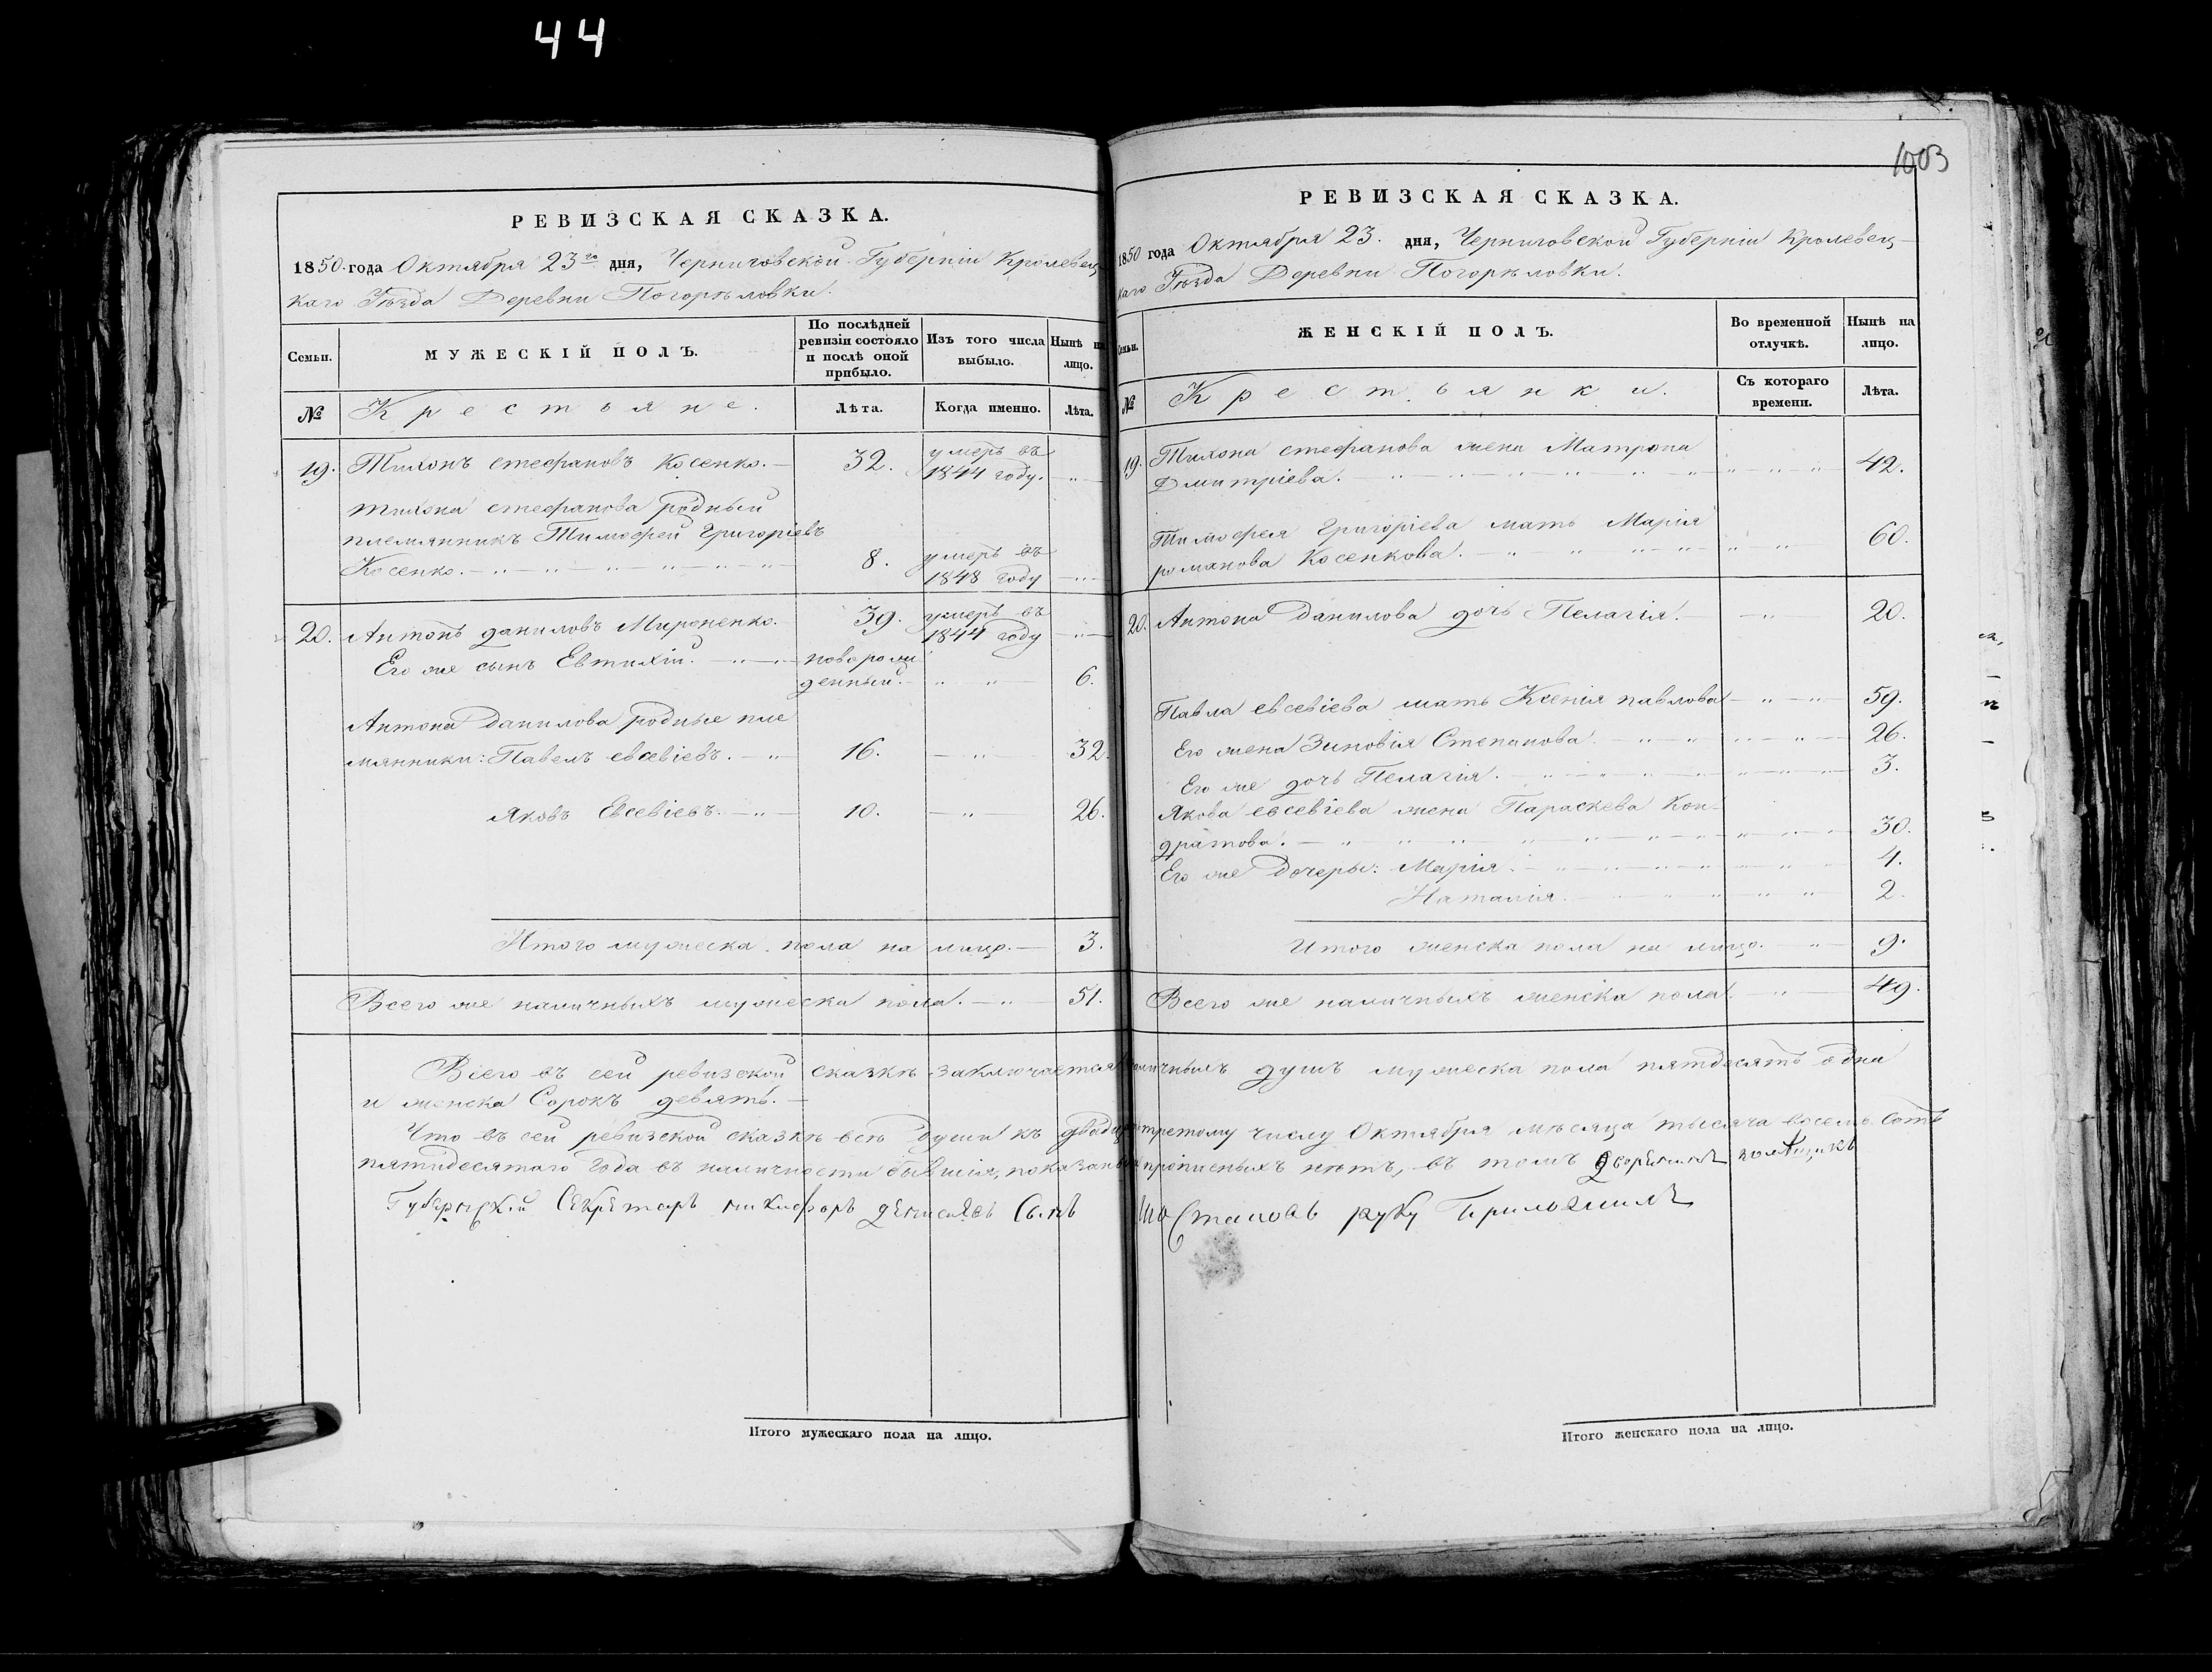 44
1003
РЕВИЗСКАЯ СКАЗКА.
1850 года Октября 23го дня, Черниговской Губерніи Кролевец-
каго Уѣзда Деревни Погорѣловки.
Семьи.
МУЖЕСКІЙ ПОЛЪ.
По послѣдней ревизіи состояло и послѣ оной прибыло.
Изъ того числа выбыло.
Нынѣ на лицо.
№
Крестьяне.
Лѣта.
Когда именно.
Лѣта.
19. Тихонъ стефановъ Косенко. 32. умеръ въ
1844 году.
тихона стефанова родный
племянникъ Тимофей Григоріевъ
Косенко. 8. умеръ въ
1848 году
20. Антонъ даниловъ Мироненко. 39. умеръ въ
1844 году
Его же сынъ Евтихій. новорож
денный. 6.
Антона Данилова родные пле
мянники: Павелъ евсевіевъ. 16. 32.
Яковъ Евсевіевъ. 10. 26.
Итого мужеска пола на лицо. 3.
Всего же наличныхъ мужеска пола. 51.
РЕВИЗСКАЯ СКАЗКА.
1850 года Октября 23. дня, Черниговской Губерніи Кролевец-
каго Уѣзда Деревни Погорѣловки.
Семьи.
ЖЕНСКІЙ ПОЛЪ.
Во временной отлучкѣ.
Нынѣ на лицо.
№
Крестьянки.
Съ котораго времени.
Лѣта.
19. Тихона стефанова жена Матрона
Дмитріева. 42.
Тимофея Григоріева мать Марія
романова Косенкова. 60.
20. Антона Данилова дочь Пелагія. 20.
Павла евсевіева мать Ксенія павлова 59.
Его жена Зиновія Степанова. 26.
Его же дочь Пелагія. 3.
Якова евсевіева жена Параскева Кон-
дратова. 30.
Его же Дочери: Марія. 4.
Наталія. 2.
Итого женска пола на лицо. 9.
Всего же наличныхъ женска пола. 49.
Всего въ сей ревизской сказкѣ заключается наличныхъ душъ мужеска пола пятдесятъ одна
и женска Сорокъ девять.
Что въ сей ревизской сказкѣ всѣ души къ двадцать третому числу Октября мѣсяца тысяча восемь сотъ
пятидесятого года въ наличности бывшія, показаны и прописныхъ нѣтъ, въ томъ
Губернский Секретарь никифоръ Сынъ руку Приложилъ
Итого мужескаго пола на лицо.
Итого женскаго пола на лицо.